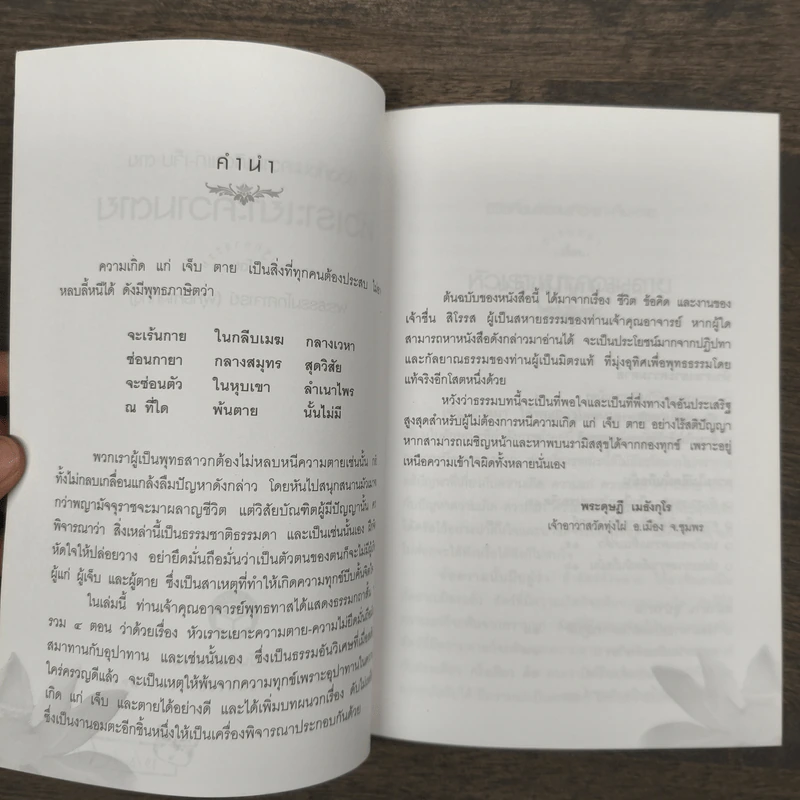 คำนำ
ความเกิด แก่ เจ็บ ตาย เป็นสิ่งที่ทุกคนต้องประสบ
หลบลี้หนีได้ ดังมีพุทธภาษิตว่า
จะเร้นกาย ในกลีบเมฆ กลางเวหา
ซ่อนกายา กลางสมุทร สุดวิสัย
จะซ่อนตัว ในหุบเขา ลำเนาไพร
ณ ที่ใด พ้นตาย นั้นไม่มี
พวกเราผู้เป็นพุทธสาวกต้องไม่หลบหนีความตายเช่นนั้น
ทั้งไม่กลบเกลื่อนแกล้งลืมปัญหาดังกล่าว โดยหันไปสนุกสนานมัวเมา
กว่าพญามัจจุราชจะมาผลาญชีวิต แต่วิสัยบัณฑิตผู้มีปัญญานั้น
พิจารณาว่า สิ่งเหล่านี้เป็นธรรมชาติธรรมดา และเป็นเช่นนั้นเอง
หัดใจให้ปล่อยวาง อย่ายึดมั่นถือมั่นว่าเป็นตัวตนของตนก็จะไม่มี
ผู้แก่ ผู้เจ็บ และผู้ตาย ซึ่งเป็นสาเหตุที่ทำให้เกิดความทุกข์บีบคั้นจิตใจ
ในเล่มนี้ ท่านเจ้าคุณอาจารย์พุทธทาสได้แสดงธรรมกถา
รวม ๔ ตอน ว่าด้วยเรื่อง หัวเราะเยาะความตาย-ความไม่ยึดมั่นถือมั่น
สมาทานกับอุปาทาน และเช่นนั้นเอง ซึ่งเป็นธรรมอันวิเศษที่เมื่อ
ใคร่ครวญดีแล้ว จะเป็นเหตุให้พ้นจากความทุกข์เพราะอุปาทานใน
เกิด แก่ เจ็บ และตายได้อย่างดี และได้เพิ่มบทผนวกเรื่อง
ซึ่งเป็นงานอมตะอีกชิ้นหนึ่งให้เป็นเครื่องพิจารณาประกอบกันด้วย
ต้นฉบับของหนังสือนี้ ได้มาจากเรื่อง ชีวิต ข้อคิด และงานของ
เจ้าชื่น สิโรรส ผู้เป็นสหายธรรมของท่านเจ้าคุณอาจารย์ หากผู้ใด
สามารถหาหนังสือดังกล่าวมาอ่านได้ จะเป็นประโยชน์มากจากปฏิปทา
และกัลยาณธรรมของท่านผู้เป็นมิตรแท้ ที่มุ่งอุทิศเพื่อพุทธธรรมโดย
แท้จริงอีกโสตหนึ่งด้วย
หวังว่าธรรมบทนี้จะเป็นที่พอใจและเป็นที่พึ่งทางใจอันประเสริฐ
สูงสุดสำหรับผู้ไม่ต้องการหนีความเกิด แก่ เจ็บ ตาย อย่างไร้สติปัญญา
หากสามารถเผชิญหน้าและหาพบนิรามิสสุขได้จากกองทุกข์ เพราะอยู่
เหนือความเข้าใจผิดทั้งหลายนั่นเอง
พระดุษฎี เมธังกุโร
เจ้าอาวาสวัดทุ่งไผ่ อ.เมือง จ.ชุมพร